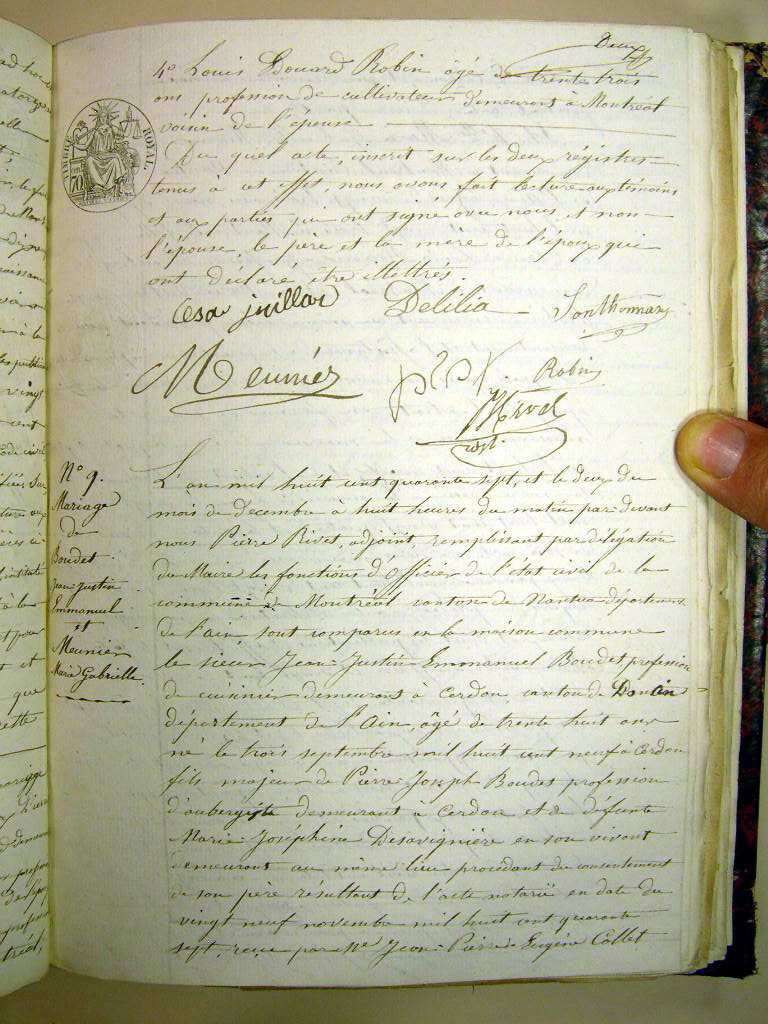 Deux
4º Louis Edouard Robin âgé de trente trois
ans profession de cultivateur demeurant à Montréal
voisin de l'épouse
TIMBRE ROYAL
70
Du quel acte, inscrit sur les deux régistres
tenus à cet effet, nous avons fait lecture aux témoins
et aux parties qui ont signé avec nous, et non
l'épouse le père et la mère de l'époux qui
ont déclaré être illettrés.
Cesa juillar Delilia Sonthonnax
Meunier Robin
Rivet
adjt.
Nº 9.
Mariage
de
Boudet
Jean Justin
Emmanuel
et
Meunier
Marie Gabrielle.
L'an mil huit cent quarante sept, et le deux du
mois de Decembre à huit heures du matin par devant
nous Pierre Rivet, adjoint, remplissant par délégation
du Maire les fonctions d'Officier de l'état civil de la
commune de Montréal canton de Nantua département
de l'ain, sont comparus en la maison commune
le sieur Jean Justin Emmanuel Boudet profession
de cuisinier demeurant à Cerdon, canton de
département de l'Ain, âgé de trente huit ans
né le trois septembre mil huit cent neuf à Cerdon
fils majeur de Pierre Joseph Boudet profession
d'aubergiste demeurant à Cerdon et de defunte
Marie Joséphine Desavignière en son vivant
demeurant au même lieu procédant du consentement
de son père résultant de l'acte notarié en date du
vingt neuf novembre mil huit cent quarante
sept, reçu par Me Jean Pierre Eugène Collet